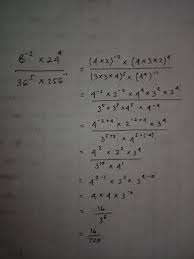 8⁻² × 24⁴ / 36⁵ × 256⁻¹ = (4 × 2)⁻² × (4 × 3 × 2)⁴ / (3 × 3 × 4)⁵ × (4⁴)⁻¹
= 4⁻² × 2⁻² × 4⁴ × 3⁴ × 2⁴ / 3⁵ × 3⁵ × 4⁵ × 4⁻⁴
= 4⁻²⁺⁴ × 2⁻²⁺⁴ × 3⁴ / 3⁵⁺⁵ × 4⁵⁺⁽⁻⁴⁾
= 4² × 2² × 3⁴ / 3¹⁰ × 4¹
= 4²⁻¹ × 2² × 3⁴⁻¹⁰
= 4 × 4 × 3⁻⁶
= 16 / 3⁶
= 16 / 729